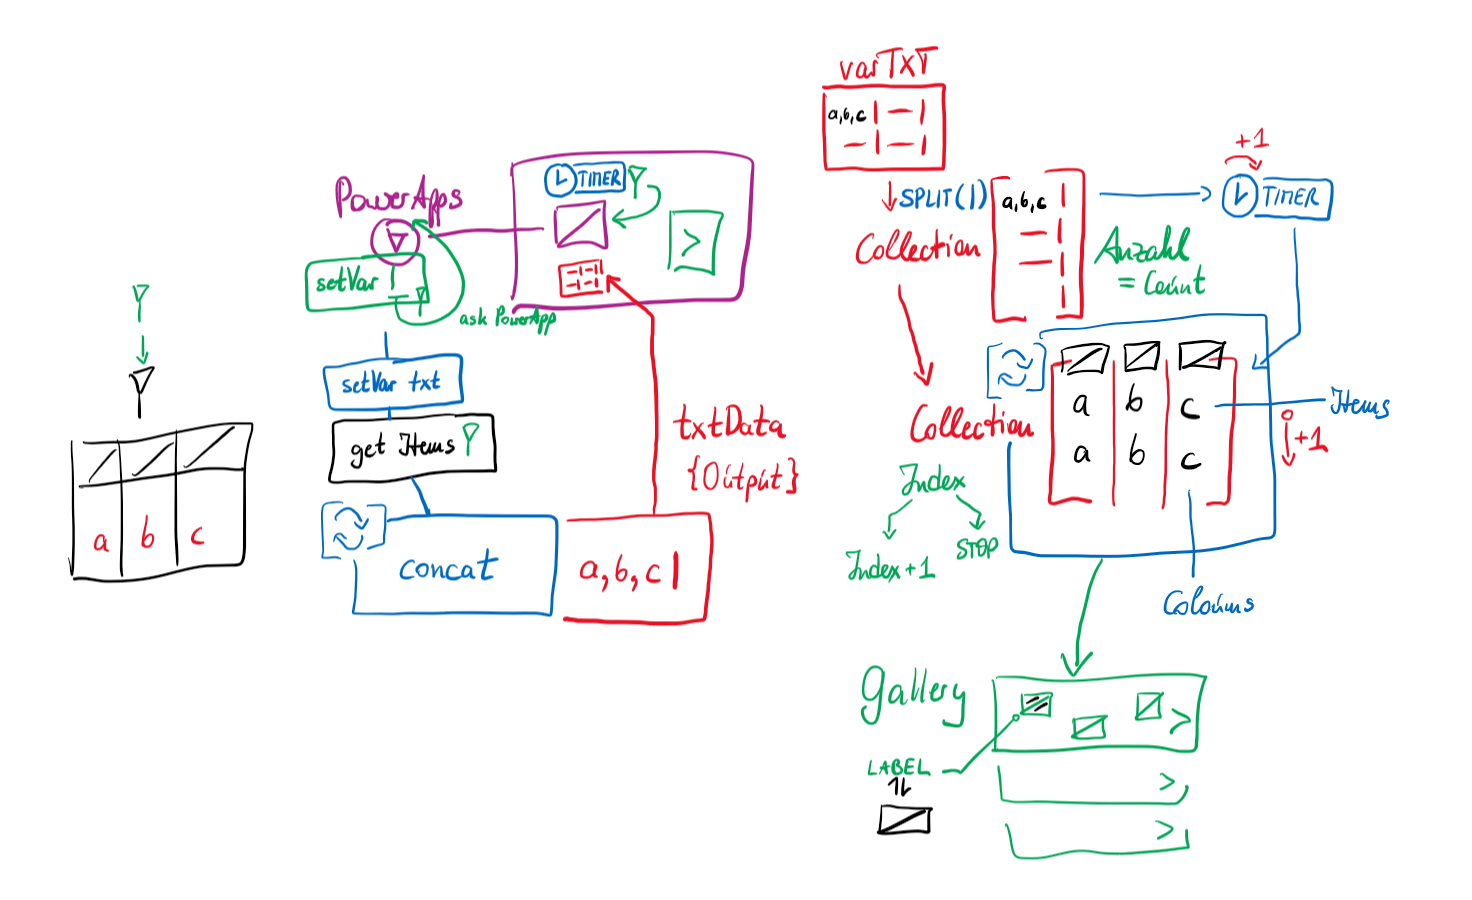 a b c
PowerApps
setVar
ask PowerApp
setVar txt
get Items
concat
a, b, c |
TIMER
>
txtData
{Output}
varTXT
a,b,c
SPLIT(|)
Collection
a,b,c
Anzahl
= Count
+1
TIMER
Collection
a b c
a b c
Items
+1
Coloums
Index
Index+1
STOP
Gallery
>
LABEL
>
>